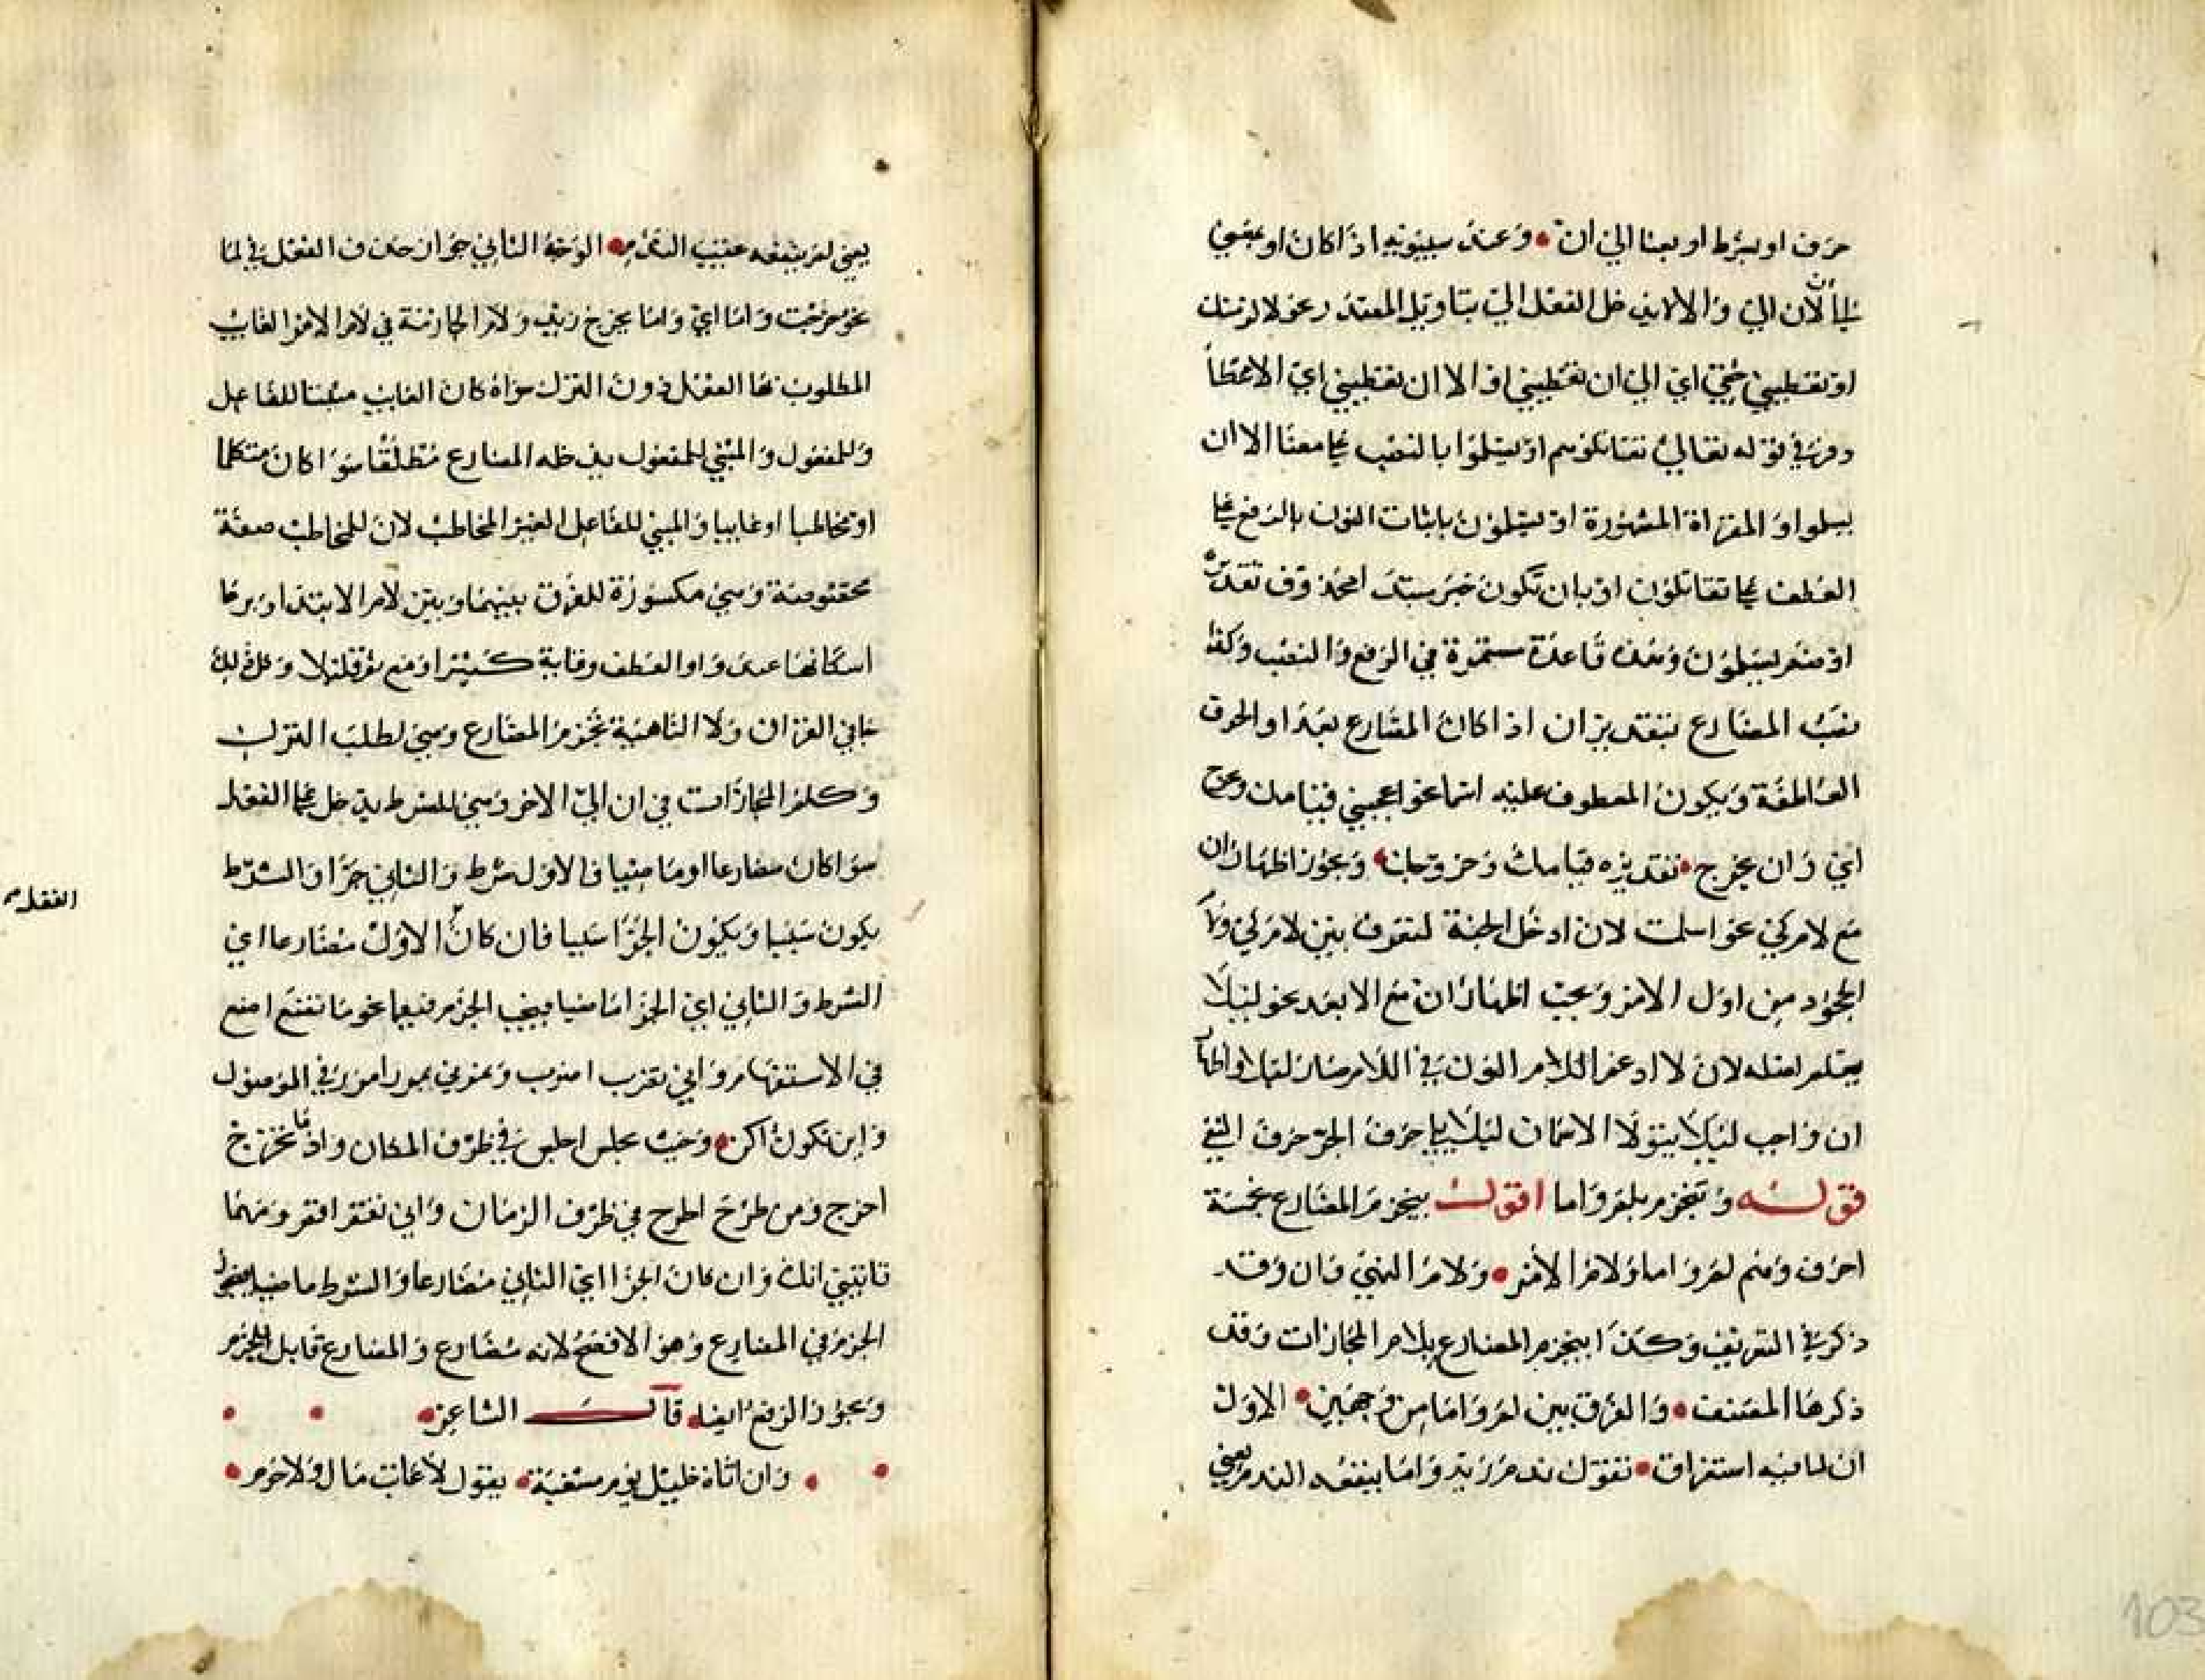 حرف او بشرط او بمعنا الي ان وعند سيبويه اذا كان او بمعني
لان الي والا لا يدخل الفعل الي بتاويل المصدر نحو لالزمنك
او تعطيني حقي اي الي ان تعطيني او الا ان تعطيني اي الا عطا
وقري في قوله تعالي تقاتلونهم او يسلموا بالنصب علي معنا الا ان
يسلموا والقراة المشهورة او يسلمون باثبات النون بالرفع علي
العطف علي تقاتلون او بان تكون خبر مبتدا محذوف تقديره
او هم يسلمون وهذه قاعدة مستمرة في الرفع والنصب وكذا
نصب المضارع بتقدير ان اذا كان المضارع بعد او الحرف
العاطفة ويكون المعطوف عليه اسما نحو اعجبني قيامك وتخرج
اي وان تخرج تقديره قيامك وخروجك ويجوز اظهار ان
مع لام كي نحو اسلمت لان ادخل الجنة لتفرق بين لام كي ولام
الجحود من اول الامر ويجب اظهار ان مع لا بعد نحو ليلا
يعلم اصله لان لا ادغم اللام النون في اللام صار ليلا واظهار
ان واجب ليلا يتولا الامان ليلا يلي حرف الجر حرف النفي
قوله وتنجزم بلم ولما اقول ينجزم المضارع بخمسة
احرف وهم لم ولما ولام الامر ولام النهي وان وقد
ذكر في التعريف وكذا ينجزم المضارع بلام المجازات وقد
ذكرها المصنف والفرق بين لم ولما من وجهين الاول
ان لما فيه استغراق تقول ندم زيد ولما ينفعه الندم يعني
يعني لم ينفعه عقيب الندم الوجه الثاني جواز حذف الفعل في لما
نحو خرجت ولما اي ولما يخرج زيد ولام الجازمة في لام الامر الغايب
المطلوب بها الفعل دون الترك سواء كان الغايب مبنيا للفاعل
وللمفعول والمبني للمفعول يدخله المضارع مطلقا سوا كان متكلما
او مخاطبا او غايبا والمبني للفاعل الغير المخاطب لان للمخاطب صيغة
مخصوصة وهي مكسورة للفرق بينهما وبين لام الابتدا وربما
اسكانها عند واو العطف وفايه كثيرا ومع ثم قليلا وكل ذلك
جا في القران ولا الناهية تجزم المضارع وهي لطلب الترك
وكلم المجازات في ان الي الاخر وهي للشرط يدخل علي الفعل
سوا كان مضارعا او ماضيا فالاول شرط والثاني جزا والشرط
يكون سببا ويكون الجزا سببا فان كان الاول مضارعا اي
الفعل
الشرط والثاني اي الجزا ماضيا فيجب الجزم فيهما نحو ما تصنع اصنع
في الاستفهام واي تضرب اضرب وبمن تمرر امرر في الموصول
واين تكون اكن وحيث تجلس اجلس في ظرف المكان واذما تخرج
اخرج ومن طرح اطرح في ظرف الزمان واي تقم اقم ومهما
تاتيني اتك وان كان الجزا اي الثاني مضارعا والشرط ماضيا فيجوز
الجزم في المضارع وهو الافصح لانه مضارع والمضارع قابل للجزم
ويجوز الرفع ايضا قال الشاعر
وان اتاه خليل يوم مسغبة يقول لا غايب مالي ولا حرم